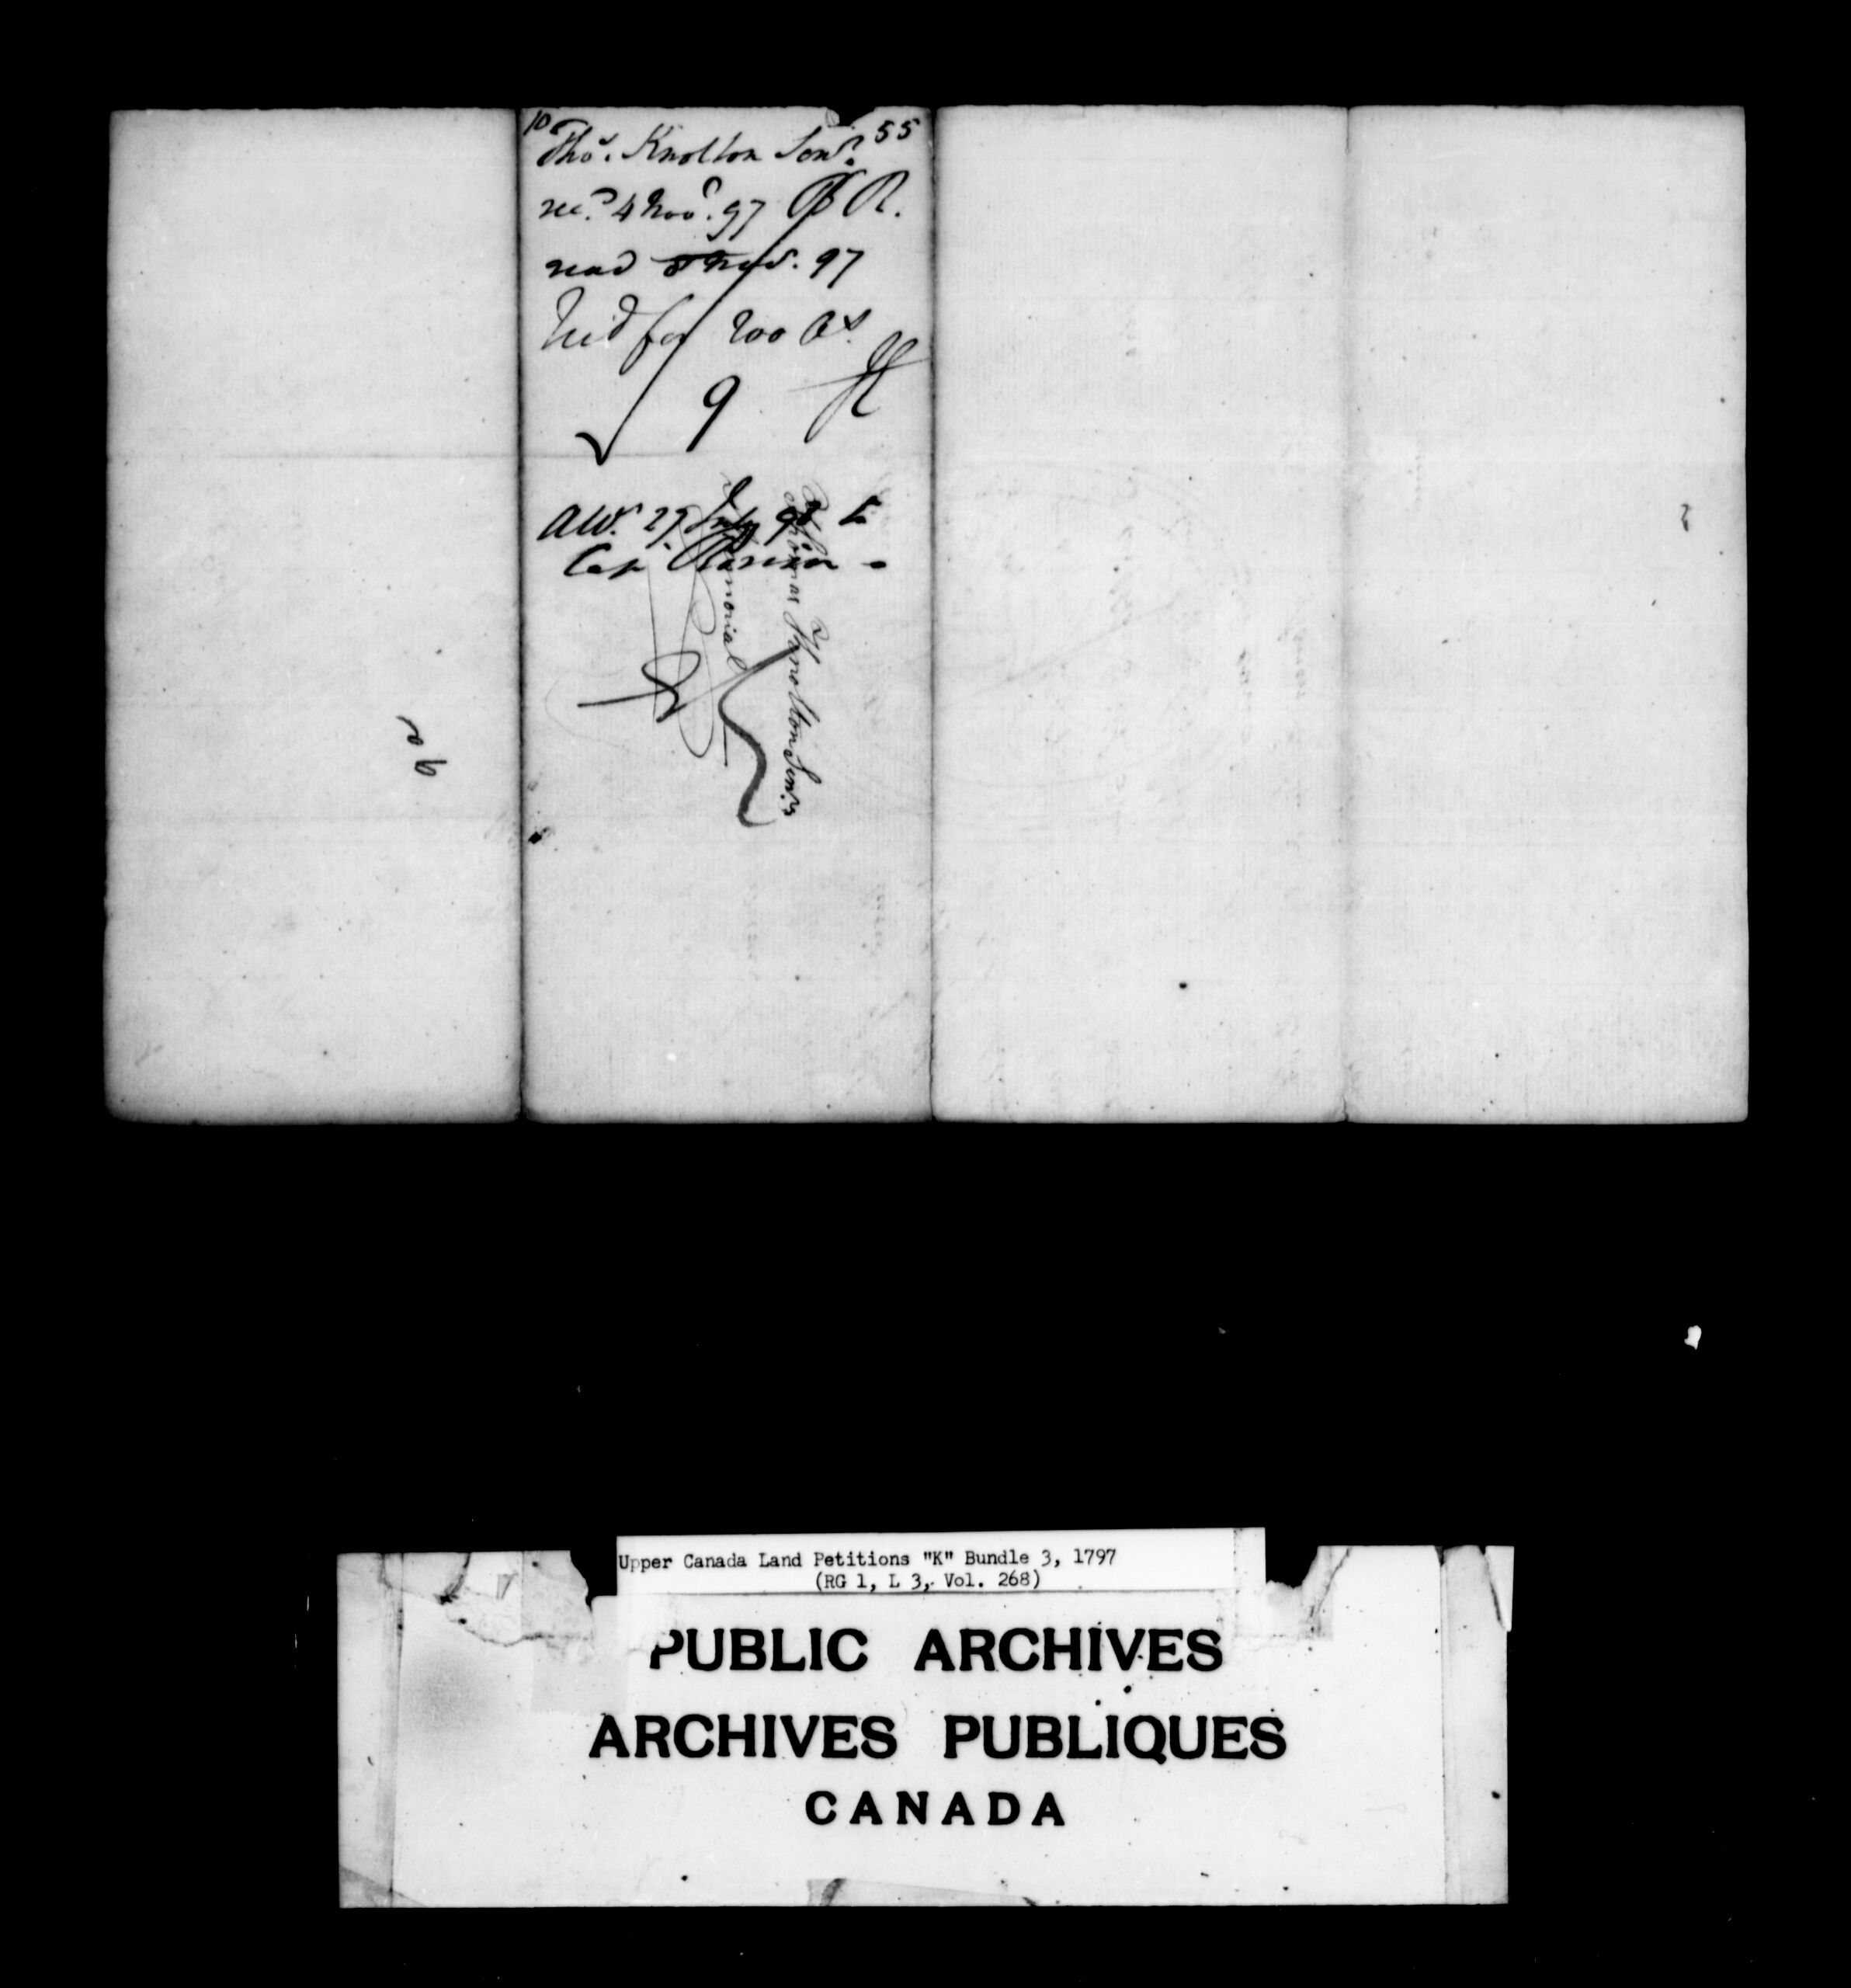 10
55
Thos. Knolton Senr.
recd. 4 Novr. 97 PR.
read 8 Novr. 97
Recd for 200 As.
9
AW. 27 July 98 to
Cap.
Memorial
Thomas Knolton Senr.
Upper Canada Land Petitions "K" Bundle 3, 1797
(RG 1, L 3, Vol. 268)
PUBLIC ARCHIVES
ARCHIVES PUBLIQUES
CANADA